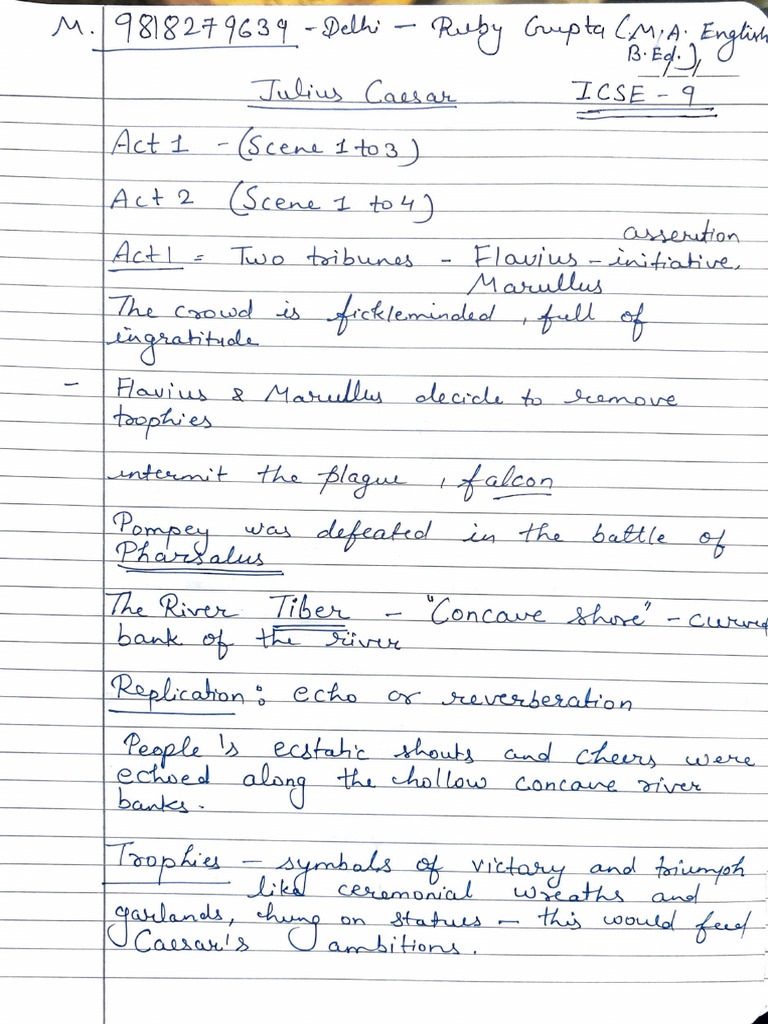 M. 9818279639 - Delhi - Ruby Gupta (M.A. English
B.Ed.)
Julius Caesar ICSE - 9
Act 1 - (Scene 1 to 3)
Act 2 (Scene 1 to 4)
assertion
Act 1 = Two tribunes - Flavius - initiative,
Marullus
The crowd is fickleminded, full of
ingratitude
- Flavius & Marullus decide to remove
trophies
intermit the plague, falcon
Pompey was defeated in the battle of
Pharsalus
The River Tiber - "Concave shore" - curved
bank of the river
Replication: echo or reverberation
People's ecstatic shouts and cheers were
echoed along the hollow concave river
banks.
Trophies - symbols of victory and triumph
like ceremonial wreaths and
garlands, hung on statues - this would feed
Caesar's ambitions.